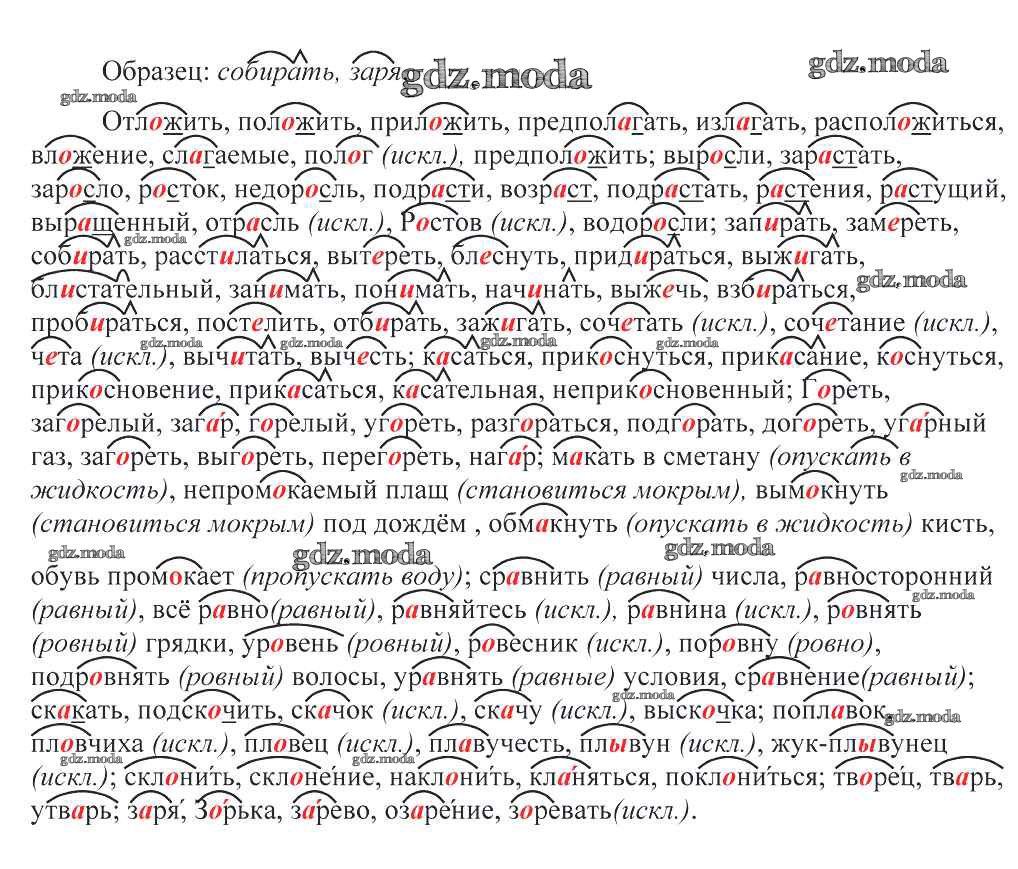 Образец: собирать, заря.
gdz.moda
gdz.moda
gdz.moda
Отложить, положить, приложить, предполагать, излагать, расположиться,
вложение, слагаемые, полог (искл.), предположить; выросли, зарастать,
заросло, росток, недоросль, подрасти, возраст, подрастать, растения, растущий,
выращенный, отрасль (искл.), Ростов (искл.), водоросли; запирать, замереть,
gdz.moda
собирать, расстилаться, вытереть, блеснуть, придираться, выжигать,
блистательный, занимать, понимать, начинать, выжечь, взбираться,
gdz.moda
пробираться, постелить, отбирать, зажигать, сочетать (искл.), сочетание (искл.),
gdz.moda gdz.moda gdz.moda gdz.moda
чета (искл.), вычитать, вычесть; касаться, прикоснуться, прикасание, коснуться,
прикосновение, прикасаться, касательная, неприкосновенный; Гореть,
загорелый, зага́р, горелый, угореть, разгораться, подгорать, догореть, уга́рный
газ, загореть, выгореть, перегореть, нага́р; макать в сметану (опускать в
gdz.moda
жидкость), непромокаемый плащ (становиться мокрым), вымокнуть
(становиться мокрым) под дождём , обмакнуть (опускать в жидкость) кисть,
gdz.moda gdz.moda gdz.moda
обувь промокает (пропускать воду); сравнить (равный) числа, равносторонний
gdz.moda
(равный), всё равно(равный), равняйтесь (искл.), равнина (искл.), ровнять
(ровный) грядки, уровень (ровный), ровесник (искл.), поровну (ровно),
подровнять (ровный) волосы, уравнять (равные) условия, сравнение(равный);
gdz.moda
скакать, подскочить, скачок (искл.), скачу (искл.), выскочка; поплавок,
gdz.moda
пловчиха (искл.), пловец (искл.), плавучесть, плывун (искл.), жук-плывунец
gdz.moda gdz.moda
(искл.); склони́ть, склоне́ние, наклони́ть, кла́няться, поклони́ться; творе́ц, тварь,
утварь; заря́, Зо́рька, за́рево, озаре́ние, зоревать(искл.).